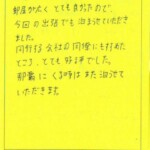 部屋が広くとても良かったので、
今回の出張でも泊まらせていただき
ました。
同行した会社の同僚にも好評で
ところ、とても好評でした。
那覇にくる時はまた泊らせて
いただきます。